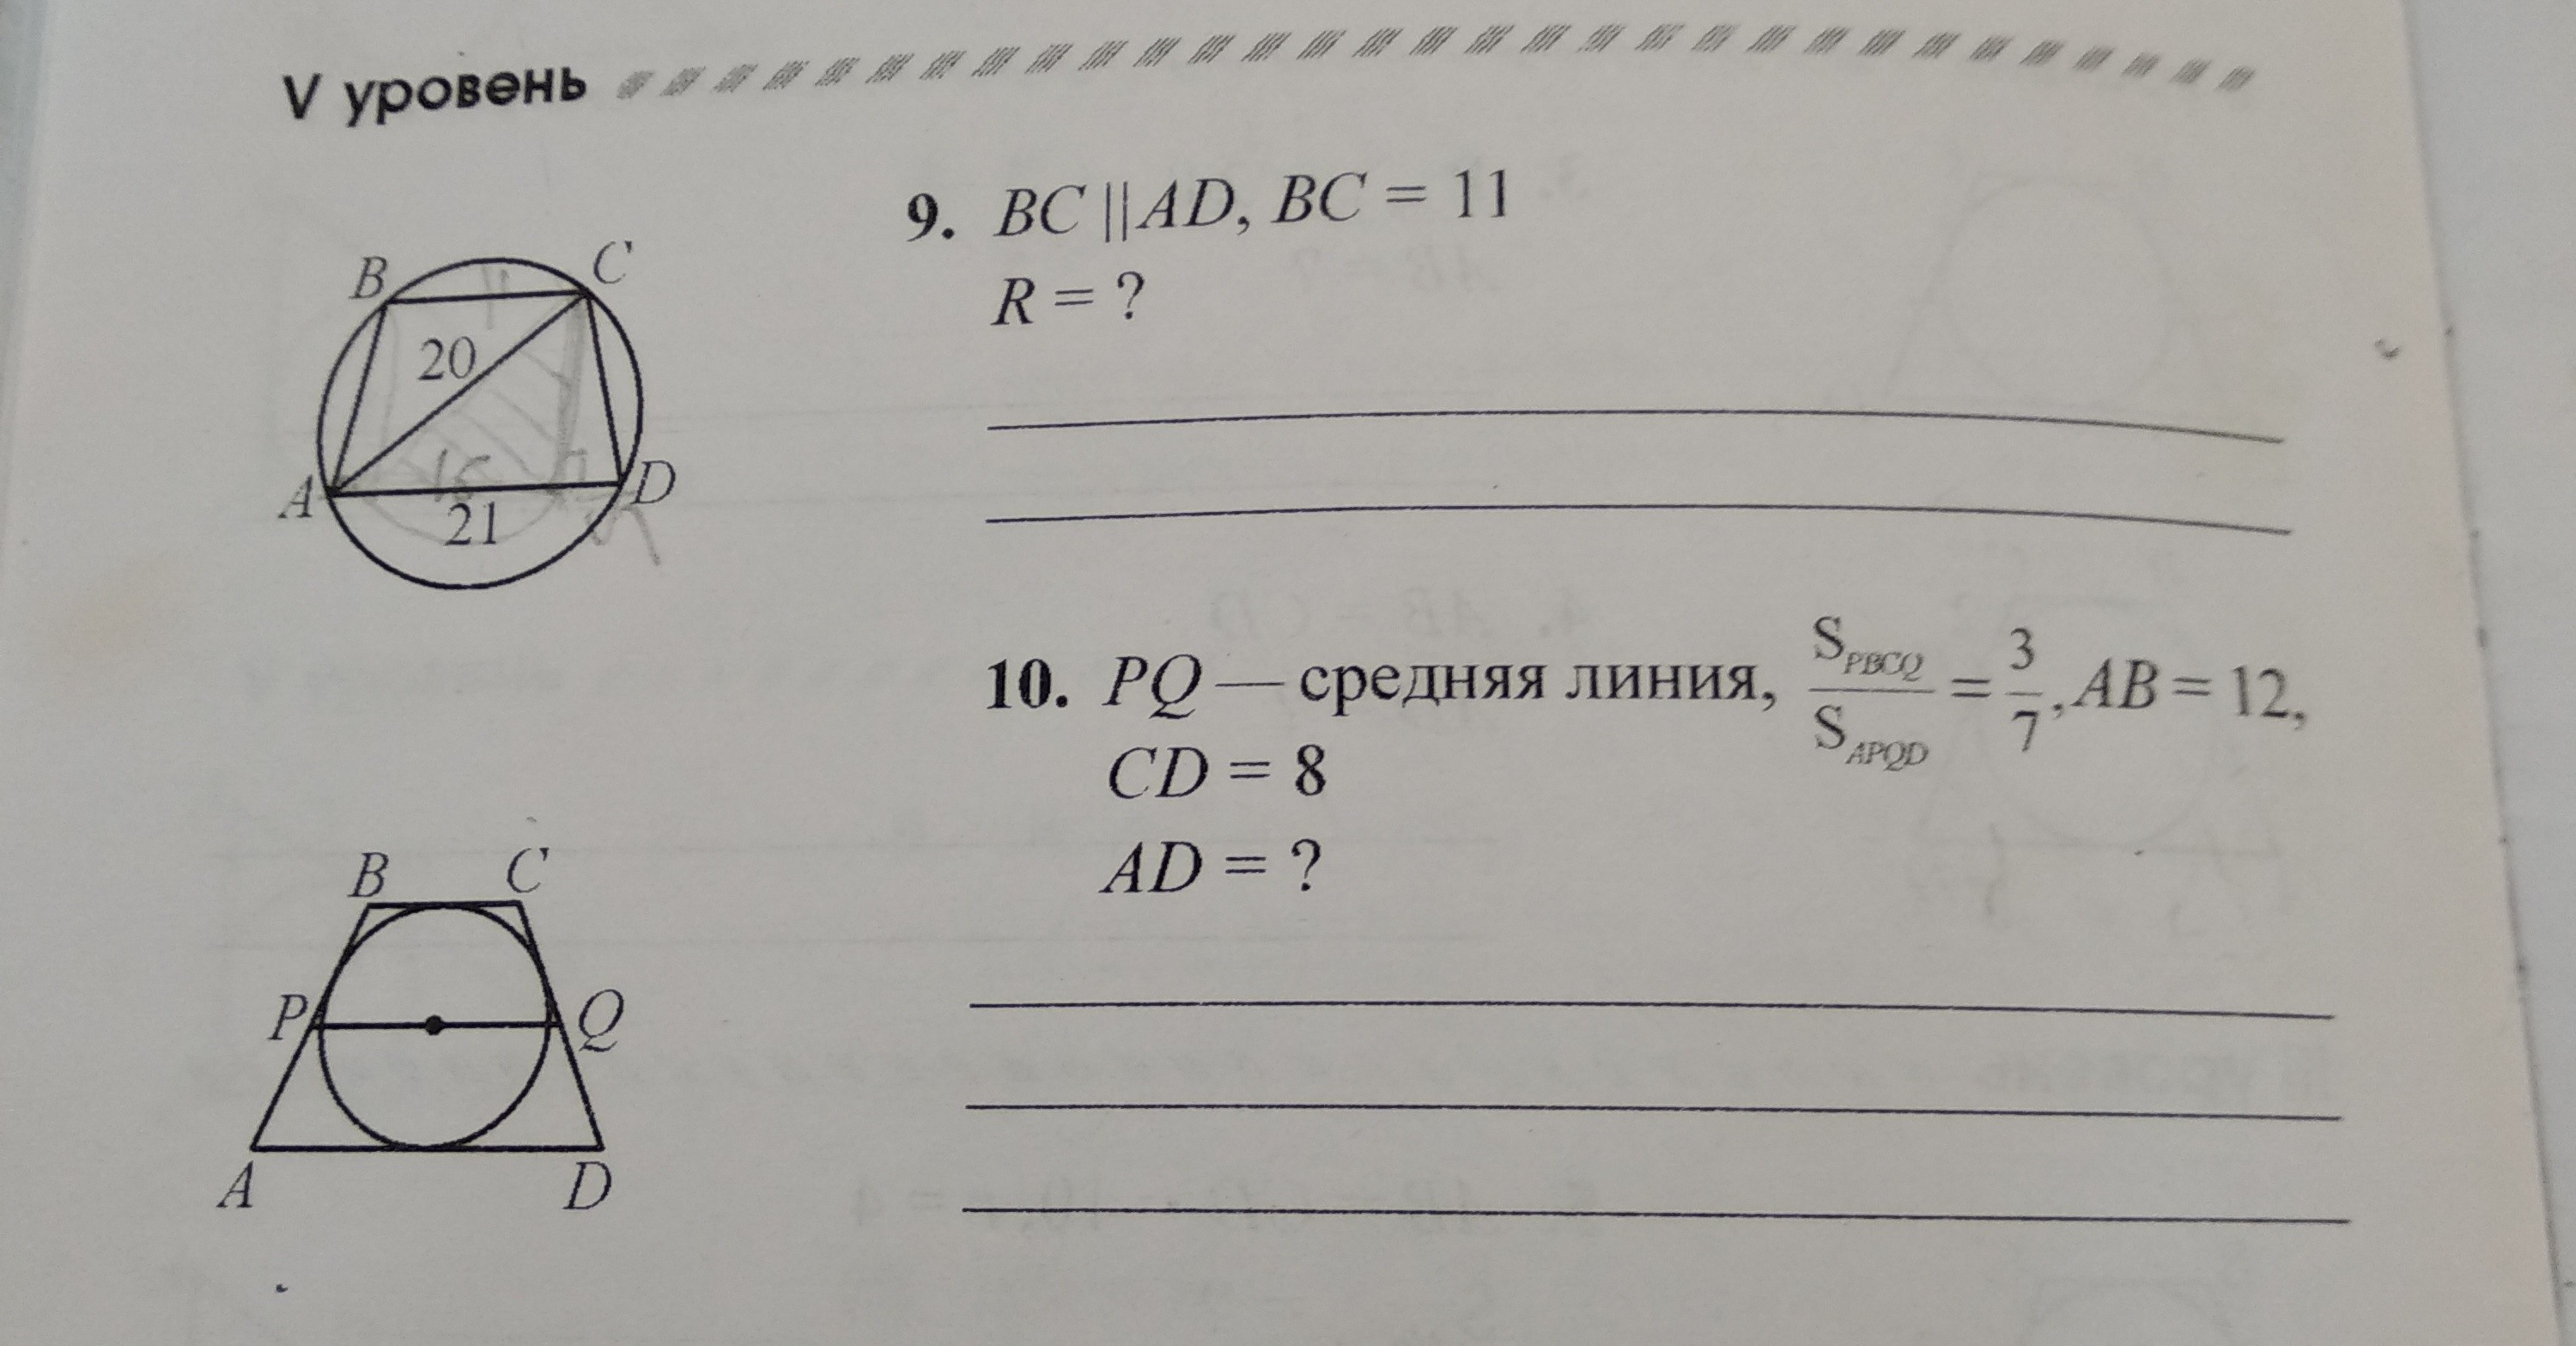 V уровень
9. BC || AD, BC = 11
R = ?
B
C
20
A
16
D
21
10. PQ — средняя линия, S_PBCQ / S_APQD = 3/7, AB = 12,
CD = 8
AD = ?
B
C
P
Q
A
D